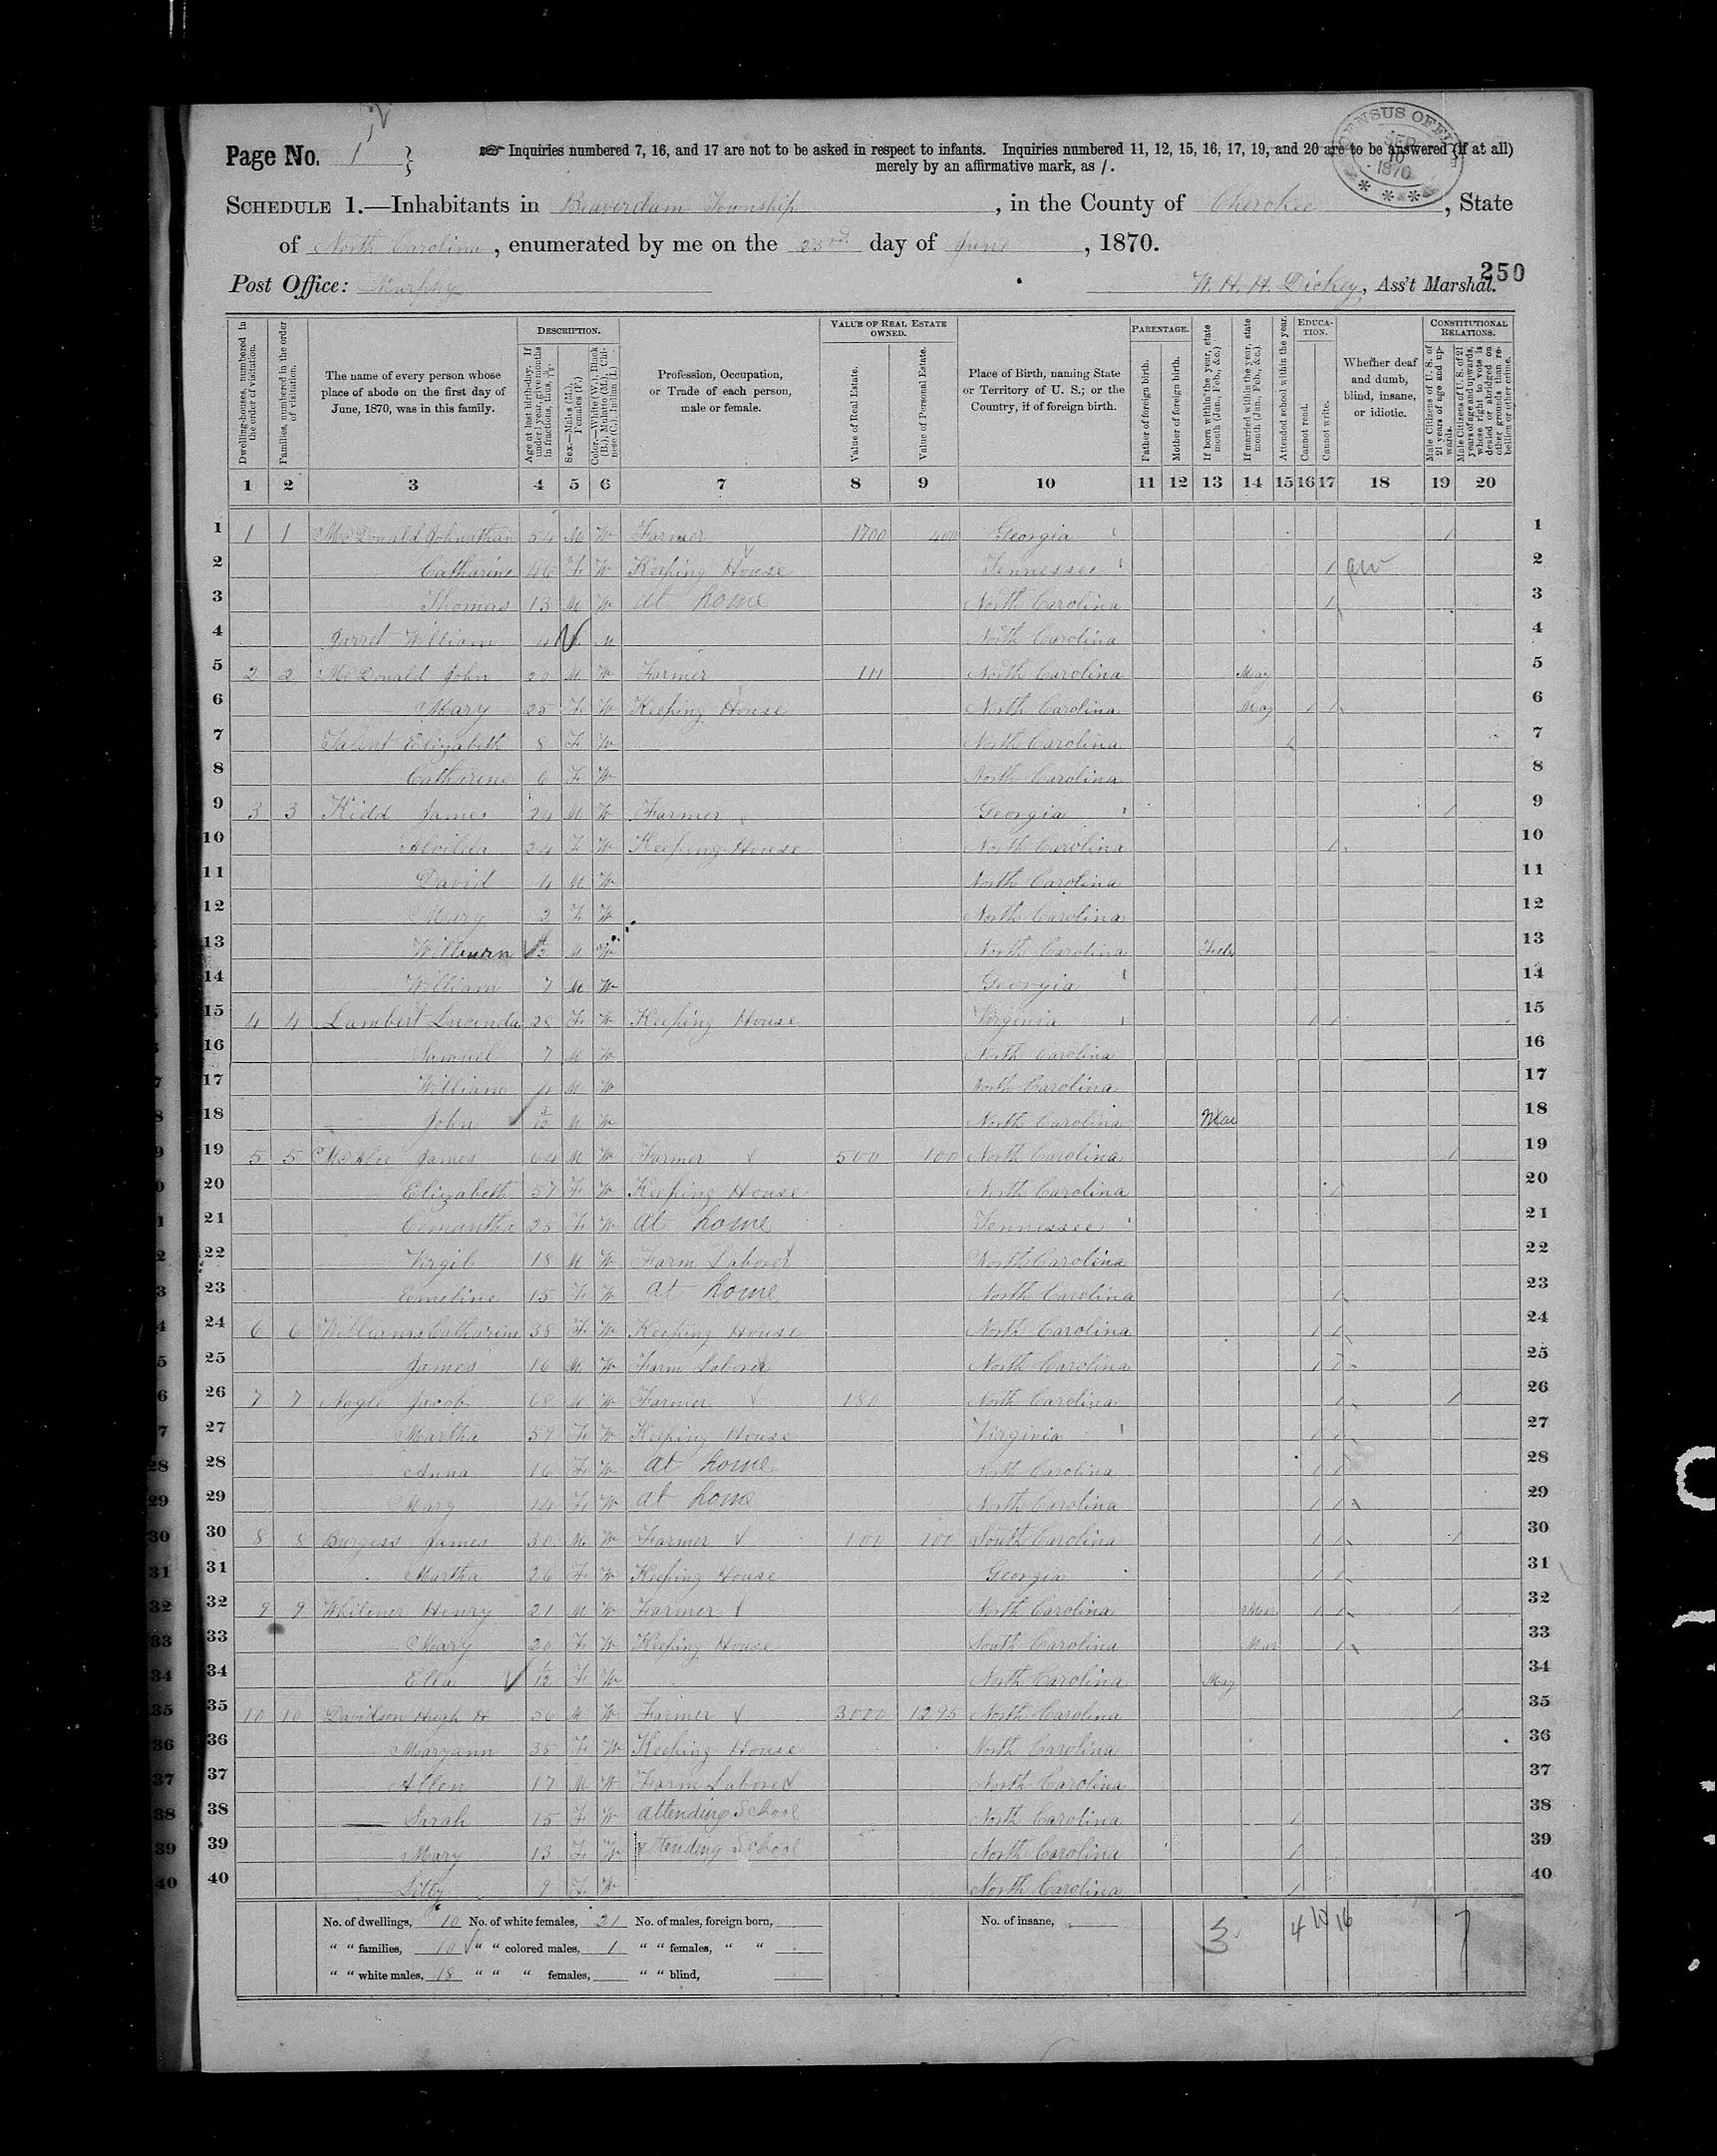 Page No. 1
☞ Inquiries numbered 7, 16, and 17 are not to be asked in respect to infants. Inquiries numbered 11, 12, 15, 16, 17, 19, and 20 are to be answered (if at all)
merely by an affirmative mark, as /.
CENSUS OFFICE
10
1870
SCHEDULE 1.—Inhabitants in Beaverdam Township, in the County of Cherokee, State
of North Carolina, enumerated by me on the 23rd day of June, 1870.
250
Post Office: Murphy W. H. H. Dickey, Ass't Marshal.
Dwelling-houses, numbered in the order of visitation.
Families, numbered in the order of visitation.
The name of every person whose place of abode on the first day of June, 1870, was in this family.
DESCRIPTION.
Age at last birth-day. If under 1 year, give months in fractions, thus, 3/12.
Sex.—Males (M.), Females (F.)
Color.—White (W.), Black (B.), Mulatto (M.), Chinese (C.), Indian (I.)
Profession, Occupation, or Trade of each person, male or female.
VALUE OF REAL ESTATE OWNED.
Value of Real Estate.
Value of Personal Estate.
Place of Birth, naming State or Territory of U. S.; or the Country, if of foreign birth.
PARENTAGE.
Father of foreign birth.
Mother of foreign birth.
If born within the year, state month (Jan., Feb., &c.)
If married within the year, state month (Jan., Feb., &c.)
Attended school within the year.
EDUCATION.
Cannot read.
Cannot write.
Whether deaf and dumb, blind, insane, or idiotic.
CONSTITUTIONAL RELATIONS.
Male Citizens of U. S. of 21 years of age and upwards.
Male Citizens of U. S. of 21 years of age and upwards, whose right to vote is denied or abridged on other grounds than rebellion or other crime.
1 2 3 4 5 6 7 8 9 10 11 12 13 14 15 16 17 18 19 20
1 1 1 McDonald Johnathan 54 M W Farmer 1700 400 Georgia 1 1
2 Catharine 46 F W Keeping House Tennessee 1 2
3 Thomas 13 M W at home North Carolina 1 3
4 Garret William 4 M North Carolina 4
5 2 2 McDonald John 20 M W Farmer North Carolina May 5
6 Mary 25 F W Keeping House North Carolina May 1 1 6
7 Talent Elizabeth 8 F W North Carolina 7
8 Catharine 6 F W North Carolina 8
9 3 3 Kidd James 24 M W Farmer Georgia 1 9
10 24 F W Keeping House North Carolina 1 10
11 David 4 M W North Carolina 11
12 Mary 2 F W North Carolina 12
13 Wilburn M W North Carolina Feb 13
14 William 7 M W Georgia 14
15 4 4 Lambert Lucinda 28 F W Keeping House Virginia 1 1 15
16 Samuel 7 M W North Carolina 16
17 William 4 M W North Carolina 17
18 John 3/12 M W North Carolina Mar 18
19 5 5 James 64 M W Farmer 500 100 North Carolina 1 19
20 Elizabeth 57 F W Keeping House North Carolina 1 20
21 Cemantha 25 F W at home Tennessee 21
22 Virgil 18 M W Farm Laborer North Carolina 22
23 Emeline 15 F W at home North Carolina 1 23
24 6 6 Williams Catharine 38 F W Keeping House North Carolina 1 1 24
25 James 16 M W Farm Laborer North Carolina 1 1 25
26 7 7 Nogle Jacob 68 M W Farmer 180 North Carolina 1 1 26
27 Martha 59 F W Keeping House Virginia 1 1 27
28 Anna 16 F W at home North Carolina 1 1 28
29 Mary 14 F W at home North Carolina 1 1 29
30 8 8 Burgess James 30 M W Farmer 100 100 South Carolina 1 1 1 30
31 Martha 26 F W Keeping House Georgia 1 1 31
32 9 9 Whitener Henry 21 M W Farmer North Carolina Mar 1 1 1 32
33 Mary 20 F W Keeping House South Carolina Mar 1 33
34 Ella 1/12 F W North Carolina May 34
35 10 10 Davidson Hugh H 36 M W Farmer 3000 1295 North Carolina 1 35
36 Maryann 35 F W Keeping House North Carolina 36
37 Allen 17 M W Farm Laborer North Carolina 37
38 Sarah 15 F W attending School North Carolina 1 38
39 Mary 13 F W attending School North Carolina 1 39
40 9 F W North Carolina 1 40
No. of dwellings, 10 No. of white females, 21 No. of males, foreign born, No. of insane,
" " families, 10 " " colored males, 1 " " females, " "
" " white males, 18 " " " females, " " blind,
3 4 10 16 7